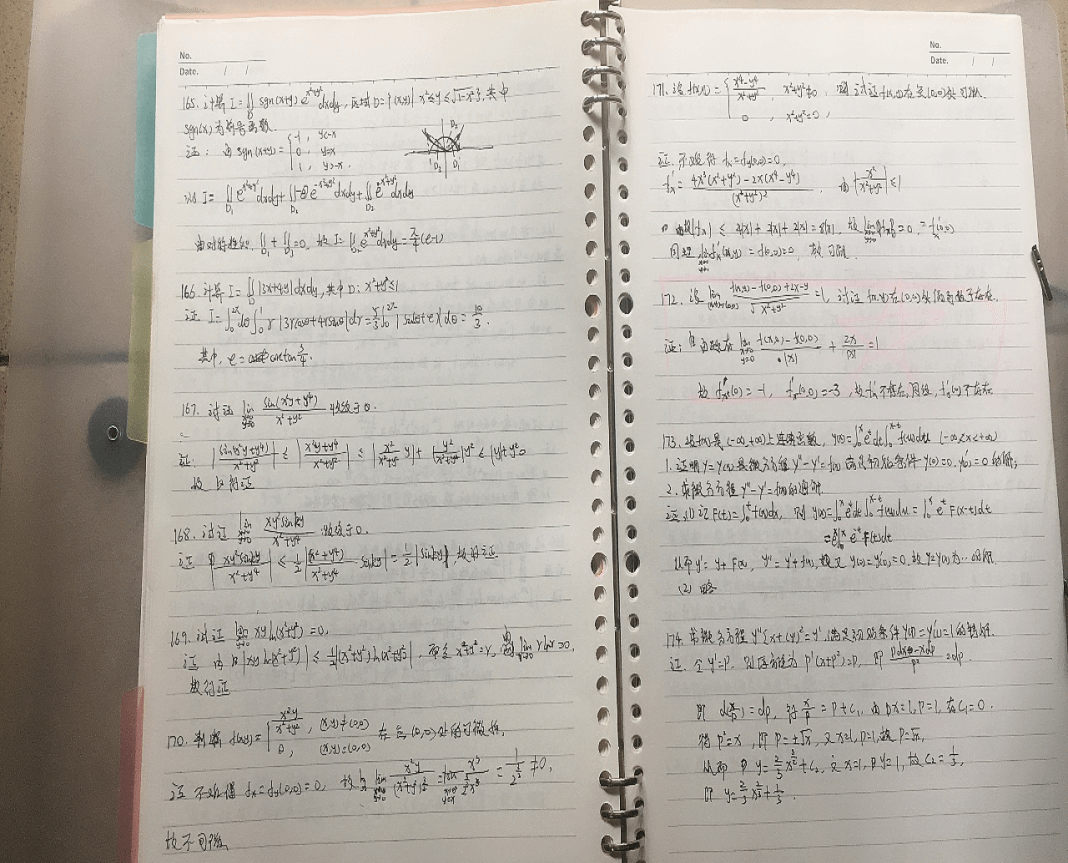 No.
Date. / /
165. 计算 I=∬_D sgn(x+y) e^{x²+y²} dxdy, 区域 D={(x,y)| x²≤y≤√(1-x²)}, 其中
sgn(x) 为符号函数.
证: 由 sgn(x+y)= { -1, y<-x
0, y=-x
1, y>-x.
D₂ D₁
I= ∬_{D₁} e^{x²+y²} dxdy + ∬ e^{x²+y²} dxdy + ∬_{D₂} e^{x²+y²} dxdy
由对称性知, ∬+∬=0, 故 I=∬ e^{x²+y²} dxdy = π/4 (e-1)
166. 计算 I=∬_D |3x+4y| dxdy, 其中 D: x²+y²≤1
证 I=∫₀^{2π} dθ ∫₀¹ r |3rcosθ+4rsinθ| dr = 5/3 ∫₀^{2π} |sin(θ+φ)| dθ = 20/3.
其中, φ= arctan 3/4.
167. 试证 lim_{x→0 y→0} sin(x²y+y⁴)/(x²+y²) 收敛于 0.
证: |sin(x²y+y⁴)/(x²+y²)| ≤ |(x²y+y⁴)/(x²+y²)| ≤ |x²/(x²+y²) y| + |y²/(x²+y²)| y² ≤ |y|+y²→0
故 得证
168. 试证 lim_{x→0 y→0} xy²sinxy/(x²+y⁴) 收敛于 0.
证 |xy²sinxy/(x²+y⁴)| ≤ 1/2 |(x²+y⁴)/(x²+y⁴) sinxy| = 1/2 |sinxy|, 故得证.
169. 试证 lim_{x→0 y→0} xy ln(x²+y²) = 0.
证 由 |xy ln(x²+y²)| ≤ 1/2 |(x²+y²) ln(x²+y²)|, 而令 x²+y²=r, 则 lim_{r→0} r lnr=0,
故得证
170. 判断 f(x,y)= { x²y/(x²+y²), (x,y)≠(0,0)
0, (x,y)=(0,0) 在点 (0,0) 处的可微性,
证 不难得 f_x=f_y(0,0)=0, 故 lim_{x→0 y→0} x²y/(x²+y²)^{3/2} = lim_{x→0 y=x} x³/(2^{3/2}x³) = 1/2^{3/2} ≠0,
故不可微
No.
Date. / /
171. 设 f(x,y)= { (x⁴-y⁴)/(x²+y²), x²+y²≠0,
0, x²+y²=0, 试证 f(x,y) 在点 (0,0) 处可微.
证. 不难得 f_x=f_y(0,0)=0.
f'_x = (4x³(x²+y²)-2x(x⁴-y⁴))/(x²+y²)². 由 |x²/(x²+y²)| ≤1
|f_x| ≤ 4|x|+2|x|+2|x|=8|x|, 故 lim_{x→0 y→0} f'_x=0 = f'_x(0,0)
同理 lim_{x→0 y→0} f'_y(x,y)=f(0,0)=0, 故可微.
172. 设 lim_{(x,y)→(0,0)} (f(x,y)-f(0,0)+2x-y)/√(x²+y²) =1, 试证 f(x,y) 在 (0,0) 处偏导数不存在.
证: 由题 lim_{x→0 y=0} (f(x,0)-f(0,0))/|x| + 2x/|x| =1
故 f'_{x+}(0)=-1, f'_{x-}(0,0)=-3, 故 f'_x 不存在, 同理, f'_y(0) 不存在
173. 设 f(x) 是 (-∞,+∞) 上连续函数, y(x)=∫₀^x e^t dt ∫₀^{x-t} f(u)du (-∞<x<+∞)
1. 证明 y=y(x) 是微分方程 y''-y'=f(x) 满足初始条件 y(0)=0, y'(0)=0 的解;
2. 求微分方程 y''-y'=f(x) 的通解.
证 (1) 记 F(t)=∫₀^t f(u)du, 则 y(x)=∫₀^x e^t dt ∫₀^{x-t} f(u)du = ∫₀^x e^t F(x-t)dt
=e^x ∫₀^x e^{-t} F(t)dt
从而 y'=y+F(x), y''=y'+f(x), 又 y(0)=y'(0)=0, 故 y=y(x) 为…的解.
(2) 略
174. 求微分方程 y''[x+(y')²]=y', 满足初始条件 y(1)=y'(1)=1 的特解.
证. 令 y'=p. 则原方程为 p'(x+p²)=p, 即 (pdx-xdp)/p² =dp.
即 d(x/p)=dp, 得 x/p=p+c₁, 由 x=1, p=1, 故 c₁=0.
得 p²=x, 即 p=±√x, 又 x=1, p=1, 故 p=√x,
从而 y=2/3 x^{3/2}+c₂, 又 x=1, y=1, 故 c₂=1/3,
即 y=2/3 x^{3/2}+1/3.